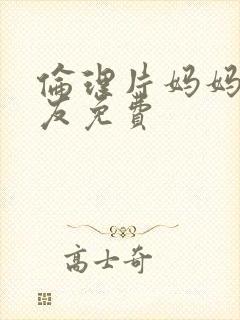 倫理片妈妈
友免費
高士奇